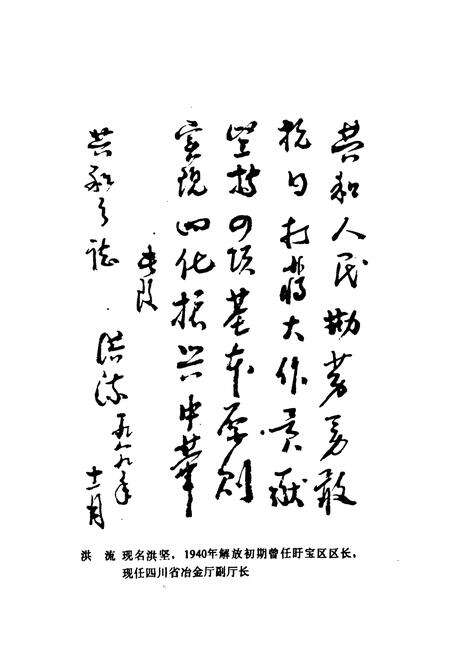 共和人民勤劳勇敢
抗日打蒋大作贡献
坚持四项基本原则
实现四化振兴中華
共和乡誌
洪流
一九八九年
十一月
洪　流 现名洪坚，1940年解放初期曾任盱宝区区长，
现任四川省冶金厅副厅长